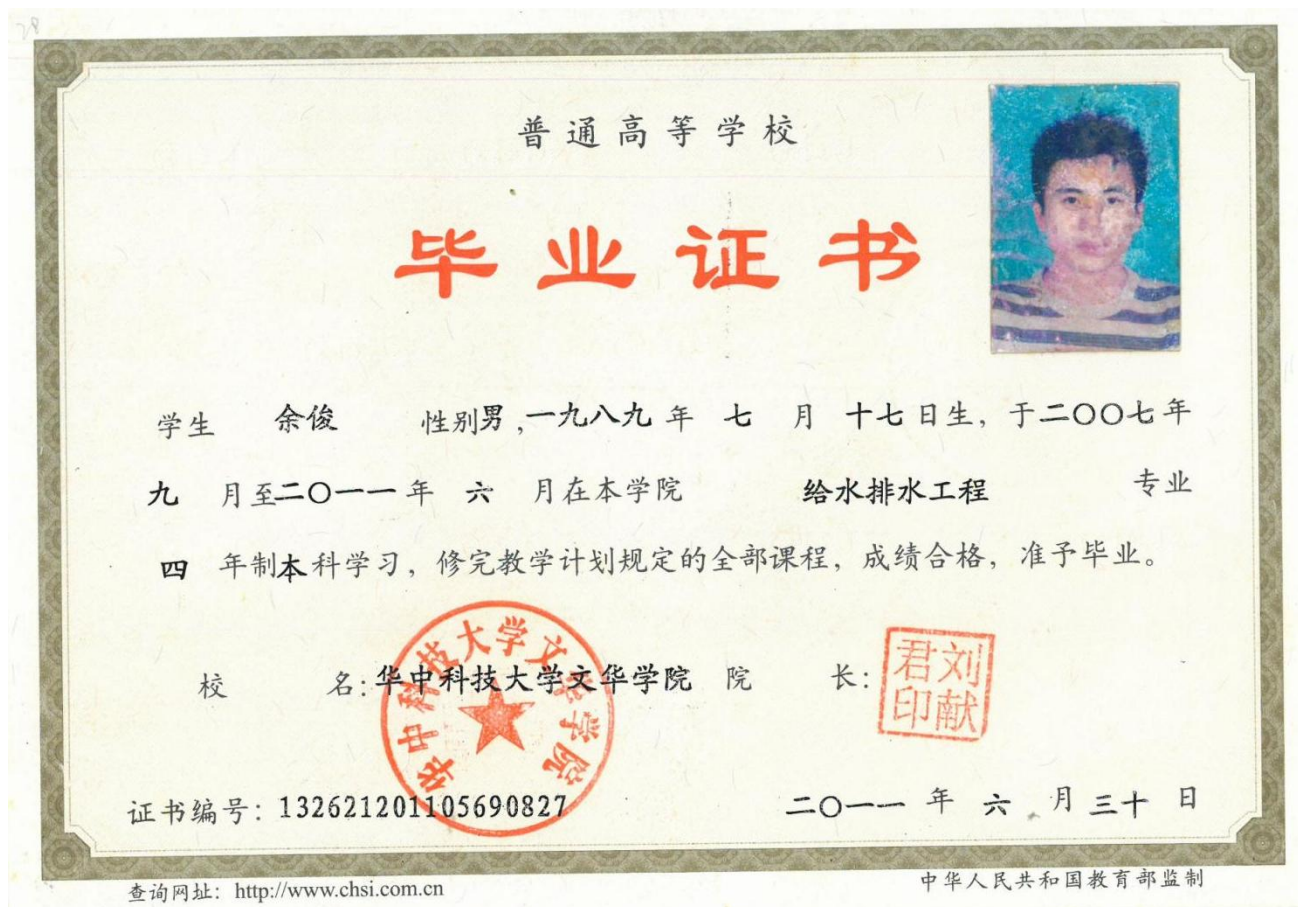 28
普通高等学校
毕业证书
学生 余俊 性别男,一九八九年 七 月 十七日生,于二〇〇七年
九 月至二〇一一年 六 月在本学院 给水排水工程 专业
四 年制本科学习,修完教学计划规定的全部课程,成绩合格,准予毕业。
华中科技大学文华学院
校 名:华中科技大学文华学院 院 长:
刘献君印
证书编号:132621201105690827 二〇一一 年 六 月 三十 日
查询网址:http://www.chsi.com.cn 中华人民共和国教育部监制